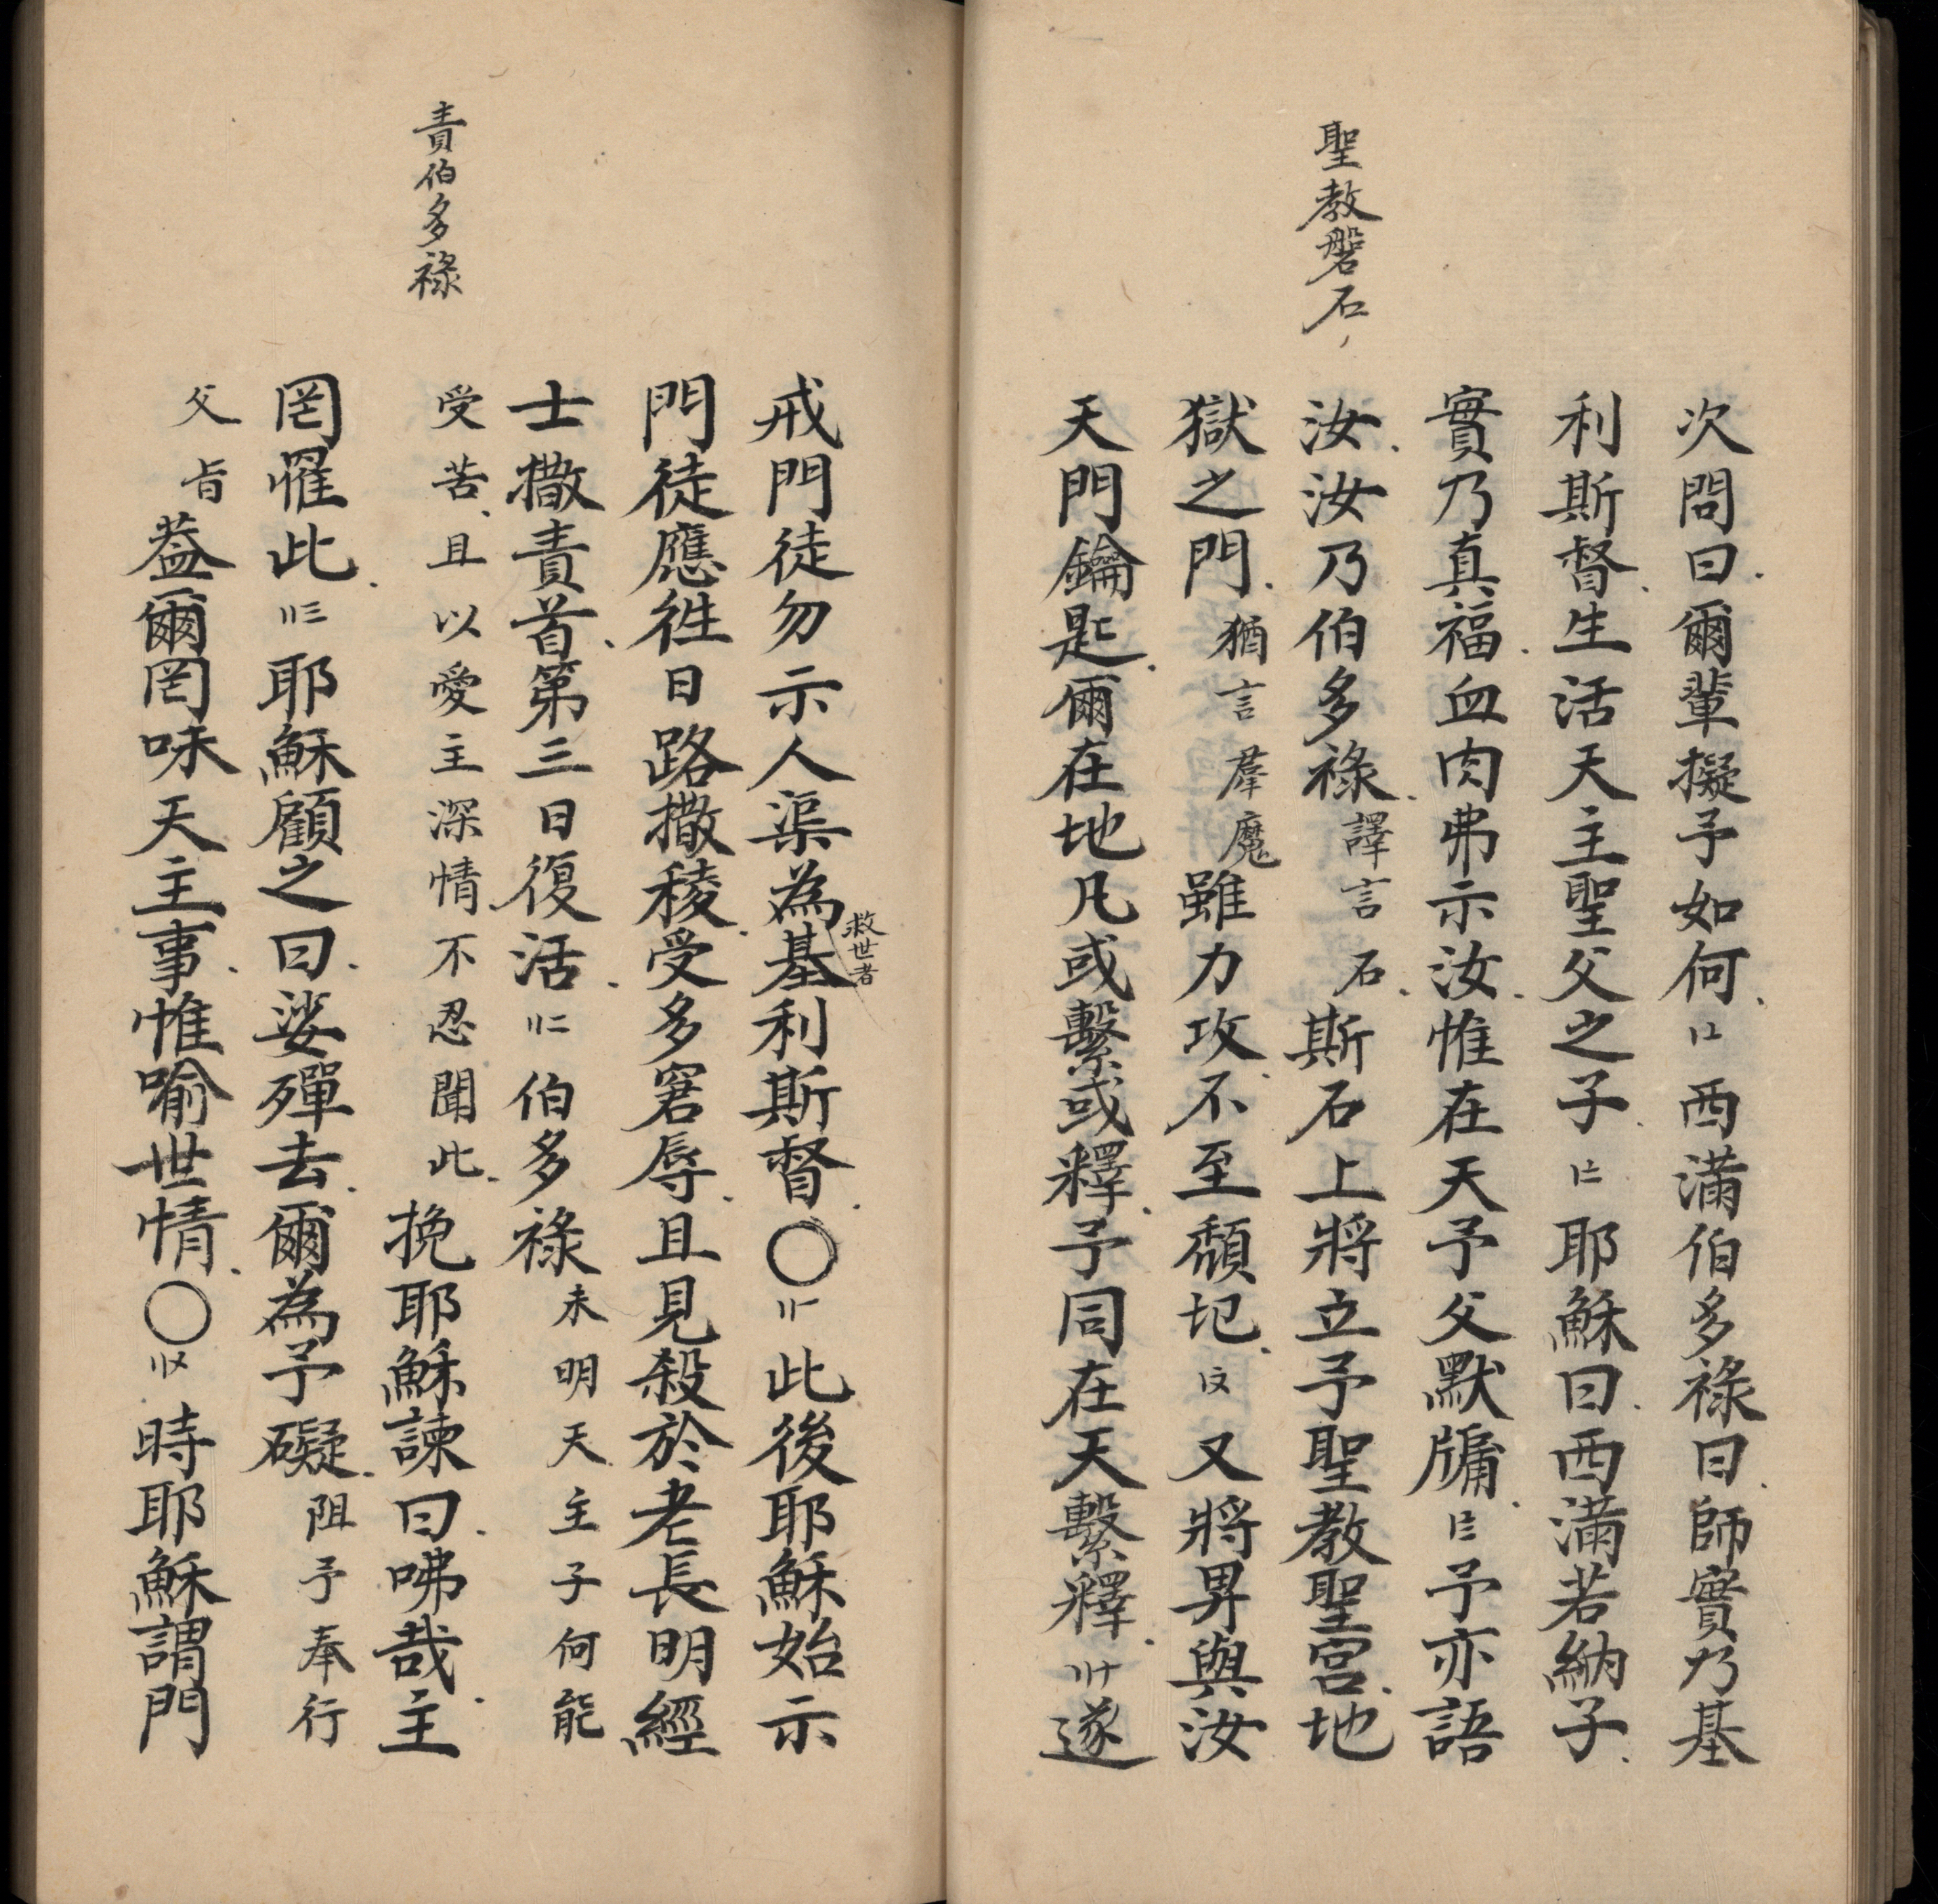 聖教磐石
次問曰爾輩擬予如何〡〦西滿伯多祿曰師實乃基
利斯督生活天主聖父之子〡〧耶穌曰西滿若納子
實乃真福血肉弗示汝惟在天予父默牖〡〨予亦語
汝汝乃伯多祿譯言石斯石上將立予聖教聖宮地
獄之門猶言羣魔雖力攻不至頹圮〡〩又將畀與汝
天門鑰匙爾在地凡或繫或釋予同在天繫釋〢十遂
戒門徒勿示人渠為基利斯督〇〢〡此後耶穌始示
救世者
門徒應徃日路撒稜受多窘辱且見殺於老長明經
士撒責首第三日復活〢二伯多祿未明天主子何能
責伯多祿
受苦且以愛主深情不忍聞此挽耶穌諫曰咈哉主
罔罹此〢三耶穌顧之曰娑殫去爾為予礙阻予奉行
父旨葢爾罔味天主事惟喻世情〇〢〤時耶穌謂門